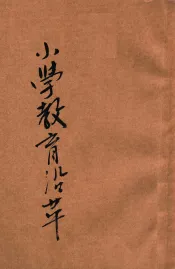 小學教育沿革